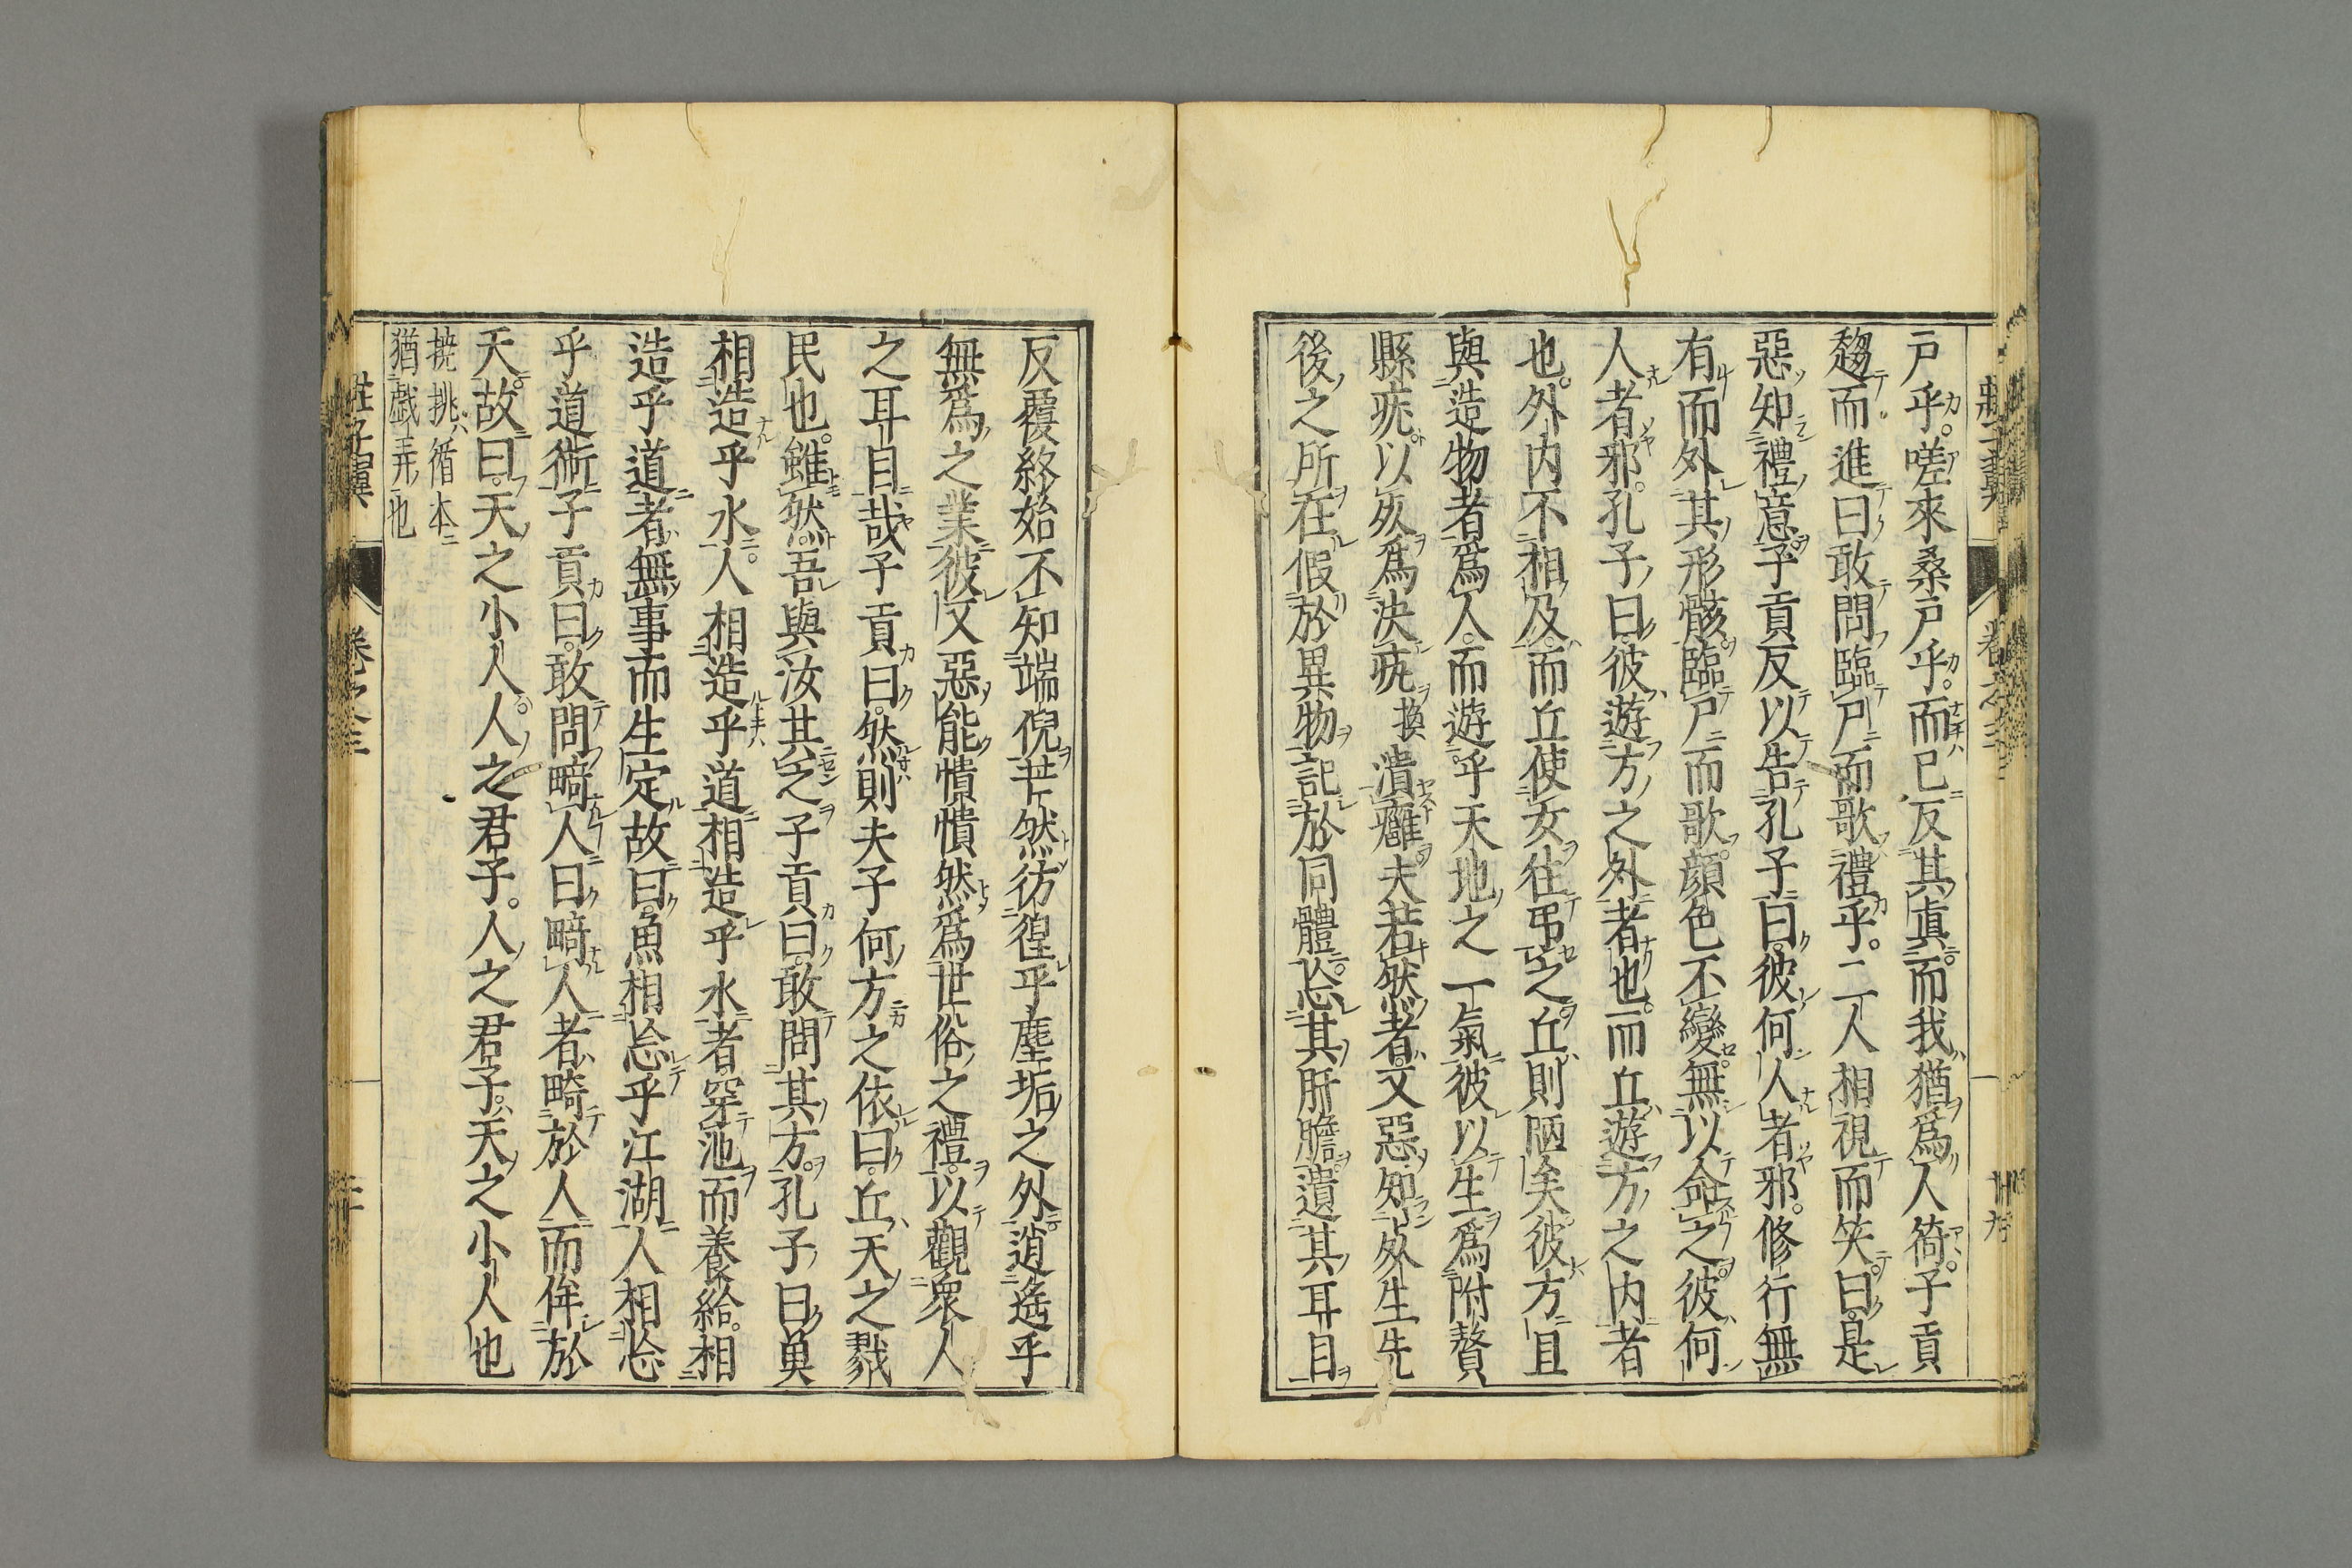 戸乎嗟來桑戸乎而已反其眞而我猶爲人猗子貢
趨而進曰敢問臨尸而歌禮乎二人相視而笑曰是
惡知禮意子貢反以告孔子曰彼何人者邪修行無
有而外其形骸臨尸而歌顔色不變無以命之彼何
人者邪孔子曰彼遊方之外者也而丘遊方之内者
也外内不相及而丘使女往弔之丘則陋矣彼方且
與造物者爲人而遊乎天地之一氣彼以生爲附贅
縣疣以死爲決𤴯換潰癰夫若然者又惡知死生先
後之所在假於異物託於同體忘其肝膽遺其耳目
反覆終始不知端倪芒然彷徨乎塵垢之外逍遙乎
無爲之業彼又惡能憒憒然爲世俗之禮以觀衆人
之耳目哉子貢曰然則夫子何方之依曰丘天之戮
民也雖然吾與汝共之子貢曰敢問其方孔子曰魚
相造乎水人相造乎道相造乎水者穿池而養給相
造乎道者無事而生定故曰魚相忘乎江湖人相忘
乎道術子貢曰敢問畸人曰畸人者畸於人而侔於
天故曰天之小人人之君子人之君子天之小人也
撓挑循本
猶戲弄也
莊子翼 卷之三